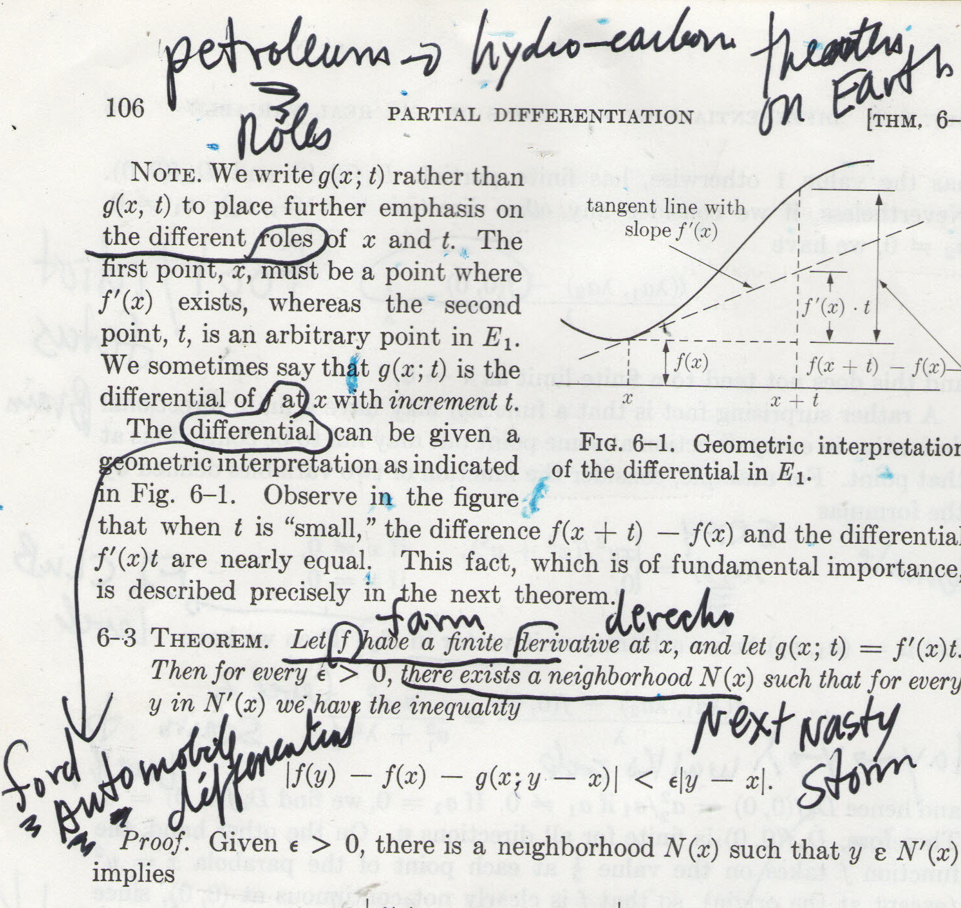 petroleum → hydro-carbon theaters
on Earth
Roles
106 PARTIAL DIFFERENTIATION [THM. 6-
NOTE. We write g(x; t) rather than
g(x, t) to place further emphasis on
the different roles of x and t. The
first point, x, must be a point where
f′(x) exists, whereas the second
point, t, is an arbitrary point in E₁.
We sometimes say that g(x; t) is the
differential of f at x with increment t.
The differential can be given a
geometric interpretation as indicated
in Fig. 6–1. Observe in the figure
tangent line with
slope f′(x)
f′(x) · t
f(x)
f(x + t)
f(x)
x
x + t
FIG. 6–1. Geometric interpretation
of the differential in E₁.
that when t is “small,” the difference f(x + t) − f(x) and the differential
f′(x)t are nearly equal. This fact, which is of fundamental importance,
is described precisely in the next theorem.
farm derecho
6–3 THEOREM. Let f have a finite derivative at x, and let g(x; t) = f′(x)t.
Then for every ϵ > 0, there exists a neighborhood N(x) such that for every
y in N′(x) we have the inequality
Next Nasty
Storm
ford
Automobile
differential
|f(y) − f(x) − g(x; y − x)| < ϵ|y − x|.
Proof. Given ϵ > 0, there is a neighborhood N(x) such that y ε N′(x)
implies